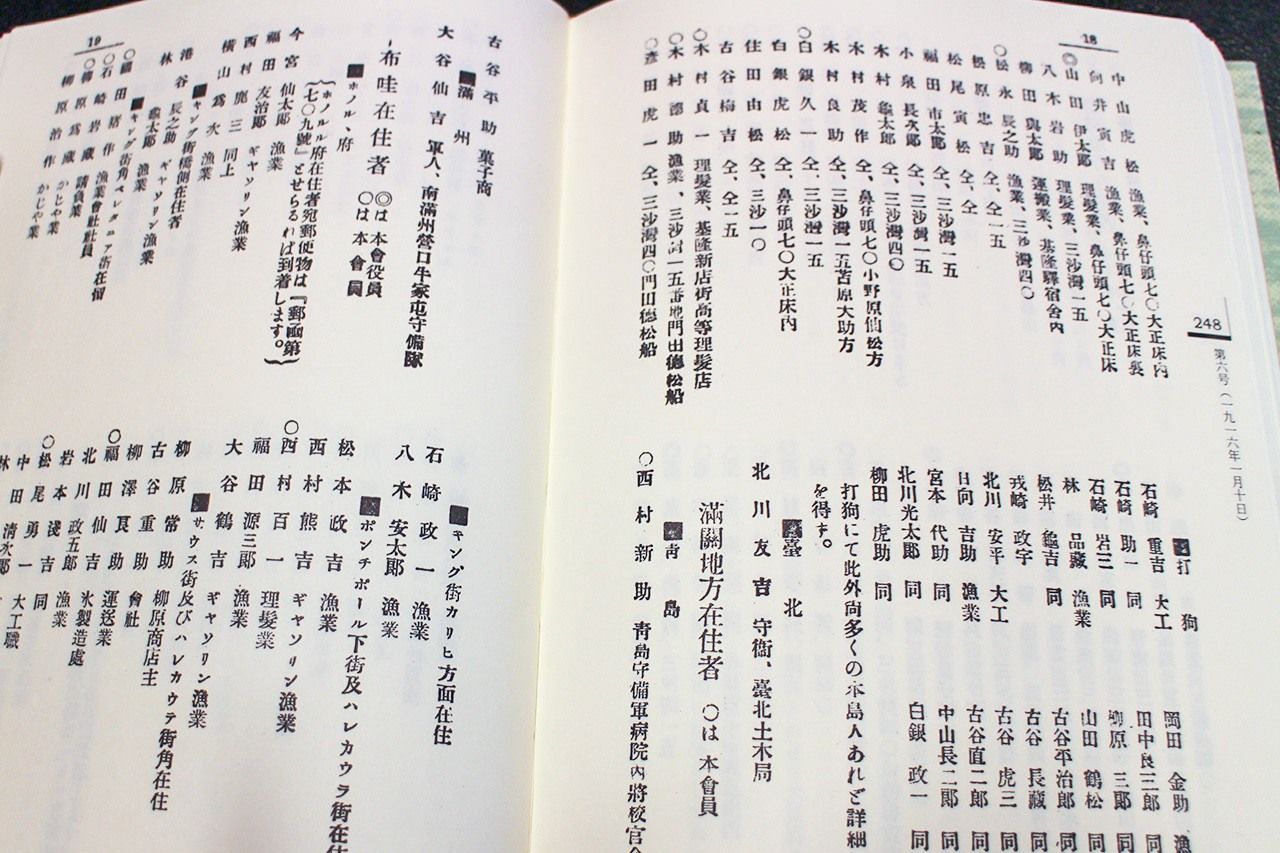 18
248
第六号(一九一六年一月十日)
中山虎松 漁業、鼻仔頭七〇大正床內
向井寅吉 漁業、鼻仔頭七〇大正床裏
◎山田伊太郎 理髮業、鼻仔頭七〇大正床
八木岩助 理髮業、三沙灣一五
柳田與太郎 運搬業、基隆驛宿舍內
〇松永辰之助 漁業、三沙灣四〇
松原忠吉 仝、仝一五
松尾寅松 仝、仝
福田市太郎 仝、三沙灣一五
小泉長次郎 仝、三沙灣一五
木村龜太郎 仝、三沙灣四〇
木村茂作 仝、鼻仔頭七〇小野原仙松方
木村良助 仝、三沙灣一五苫原大助方
〇白銀久一 仝、三沙灣一五
白銀虎松 仝、鼻仔頭七〇大正床內
住田由松 仝、三沙一〇
古谷梅吉 仝、仝一五
〇木村貞一 理髮業、基隆新店街高等理髮店
〇木村德助 漁業、三沙灣一五番地門出德松船
〇彥田虎一 仝、三沙灣四〇門田德松船
■打狗
石崎重吉 大工
石崎助一 同
石崎岩三 同
林品藏 漁業
松井龜吉 同
戎崎政宇
北川安平 大工
日向吉助 漁業
宮本代助 同
北川光太郎 同
柳田虎助 同
岡田金助 漁
田中良三郎 同
柳原三郎 同
山田鶴松 同
古谷平治郎 同
古谷長藏 同
古谷虎三 同
古谷直二郎 同
中山長二郎 同
白銀政一 同
打狗にて此外尚多くの本島人あれど詳細
を得す。
■臺北
北川友吉 守衞、臺北土木局
滿關地方在住者 〇は本會員
■靑島
〇西村新助 靑島守備軍病院內將校官
19
古谷平助 菓子商
■滿州
大谷仙吉 軍人、南滿州營口牛家屯守備隊
布哇在住者 ◎は本會役員 〇は本會員
■ホノル、府
(ホノルル府在住者宛郵便物は『郵凾第
七〇九號』とせらるれば到着します。)
今宮仙太郎 漁業
福田友治郎 ギャソリン漁業
西村鹿三 同上
橫山爲次 漁業
■キング街橋側在住者
港谷辰之助 ギャソリン漁業
林龜太郎 漁業
■キング街角ベレタニア街在留
〇國田猪作 漁業會社社員
〇石崎岩藏 請負業
〇柳原爲藏 かじや業
柳原治作 かじや業
■キング街カリヒ方面在住
石崎政一 漁業
八木安太郎 漁業
■ボンチボール下街及ハレカウラ街在住
松本政吉 漁業
西村熊吉 ギャソリン漁業
〇西村百一 理髮業
福田源三郎 漁業
大谷鶴吉 ギャソリン漁業
■サウス街及びハレカウテ街角在住
柳原常助 柳原商店主
古谷重助 會社
柳澤良助 運送業
〇福田仙助 氷製造處
北川政五郎 漁業
岩本淺吉 同
〇松尾勇一 大工職
中田淸次郎
林